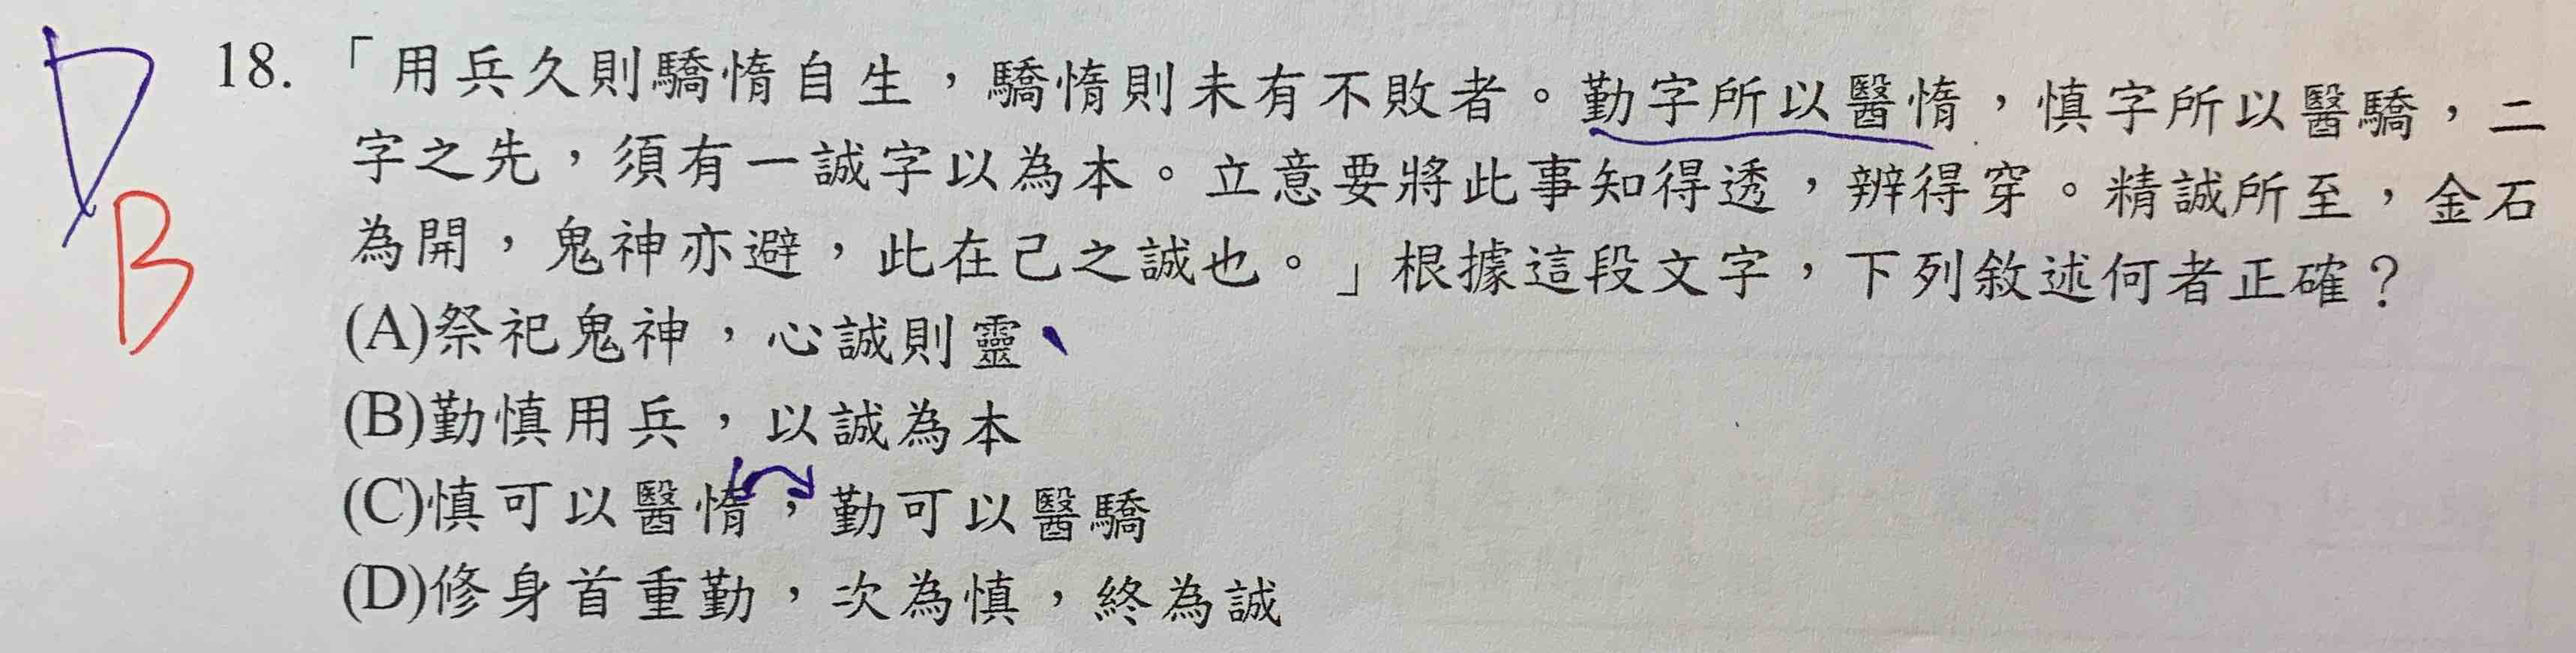 D
B
18.「用兵久則驕惰自生,驕惰則未有不敗者。勤字所以醫惰,慎字所以醫驕,二
字之先,須有一誠字以為本。立意要將此事知得透,辨得穿。精誠所至,金石
為開,鬼神亦避,此在己之誠也。」根據這段文字,下列敘述何者正確?
(A)祭祀鬼神,心誠則靈
(B)勤慎用兵,以誠為本
(C)慎可以醫惰,勤可以醫驕
(D)修身首重勤,次為慎,終為誠